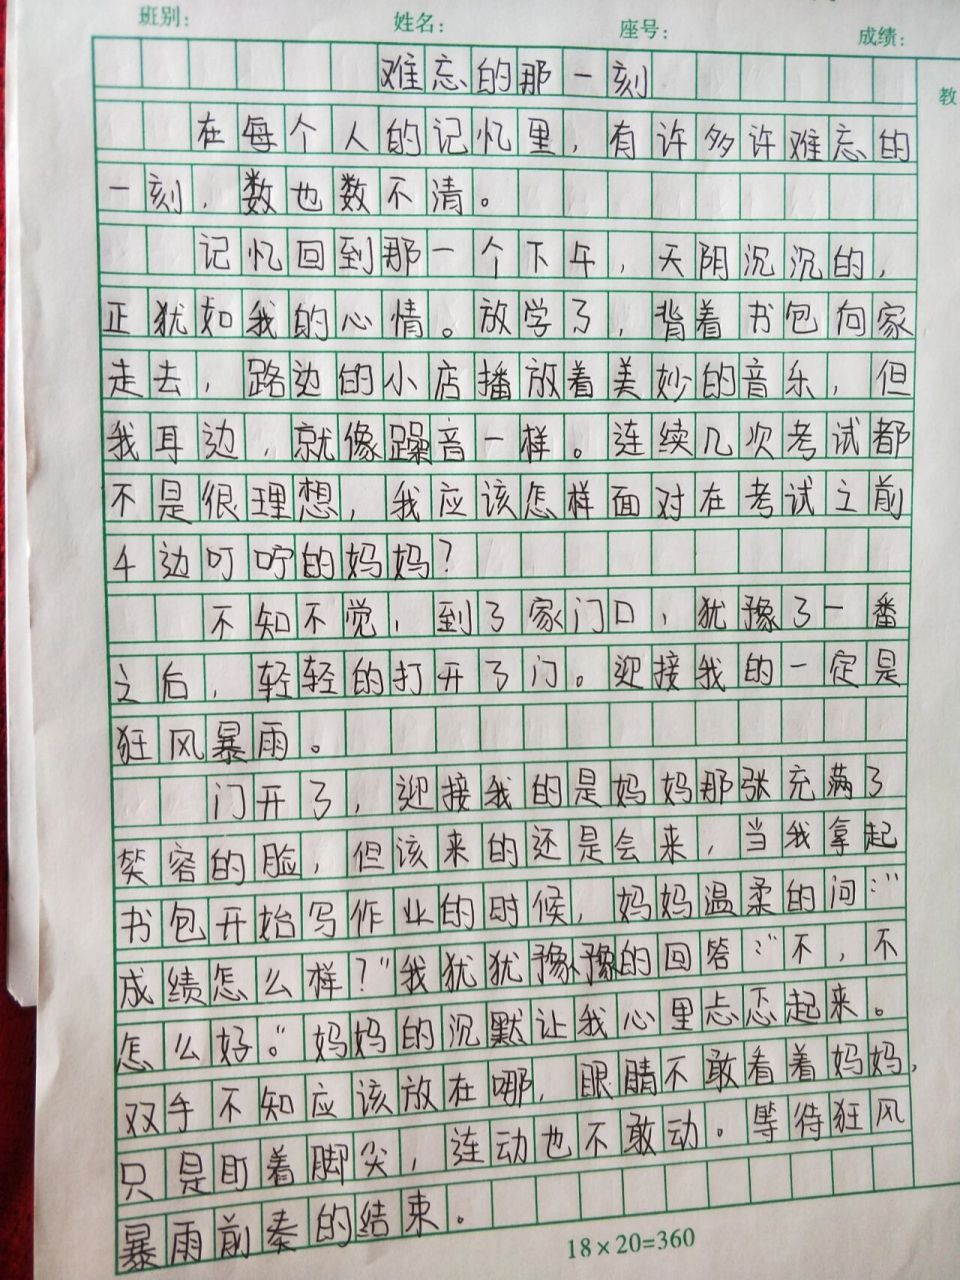 班别： 姓名： 座号： 成绩：
教
难忘的那一刻
在每个人的记忆里，有许多许难忘的
一刻，数也数不清。
记忆回到那一个下午，天阴沉沉的，
正犹如我的心情。放学了，背着书包向家
走去，路边的小店播放着美妙的音乐，但
我耳边，就像躁音一样。连续几次考试都
不是很理想，我应该怎样面对在考试之前
千边叮咛的妈妈？
不知不觉，到了家门口，犹豫了一番
之后，轻轻的打开了门。迎接我的一定是
狂风暴雨。
门开了，迎接我的是妈妈那张充满了
笑容的脸，但该来的还是会来，当我拿起
书包开始写作业的时候，妈妈温柔的问：“
成绩怎么样？”我犹犹豫豫的回答：“不，不
怎么好。”妈妈的沉默让我心里忐忑起来。
双手不知应该放在哪，眼睛不敢看着妈妈，
只是盯着脚尖，连动也不敢动。等待狂风
暴雨前奏的结束。
18×20=360